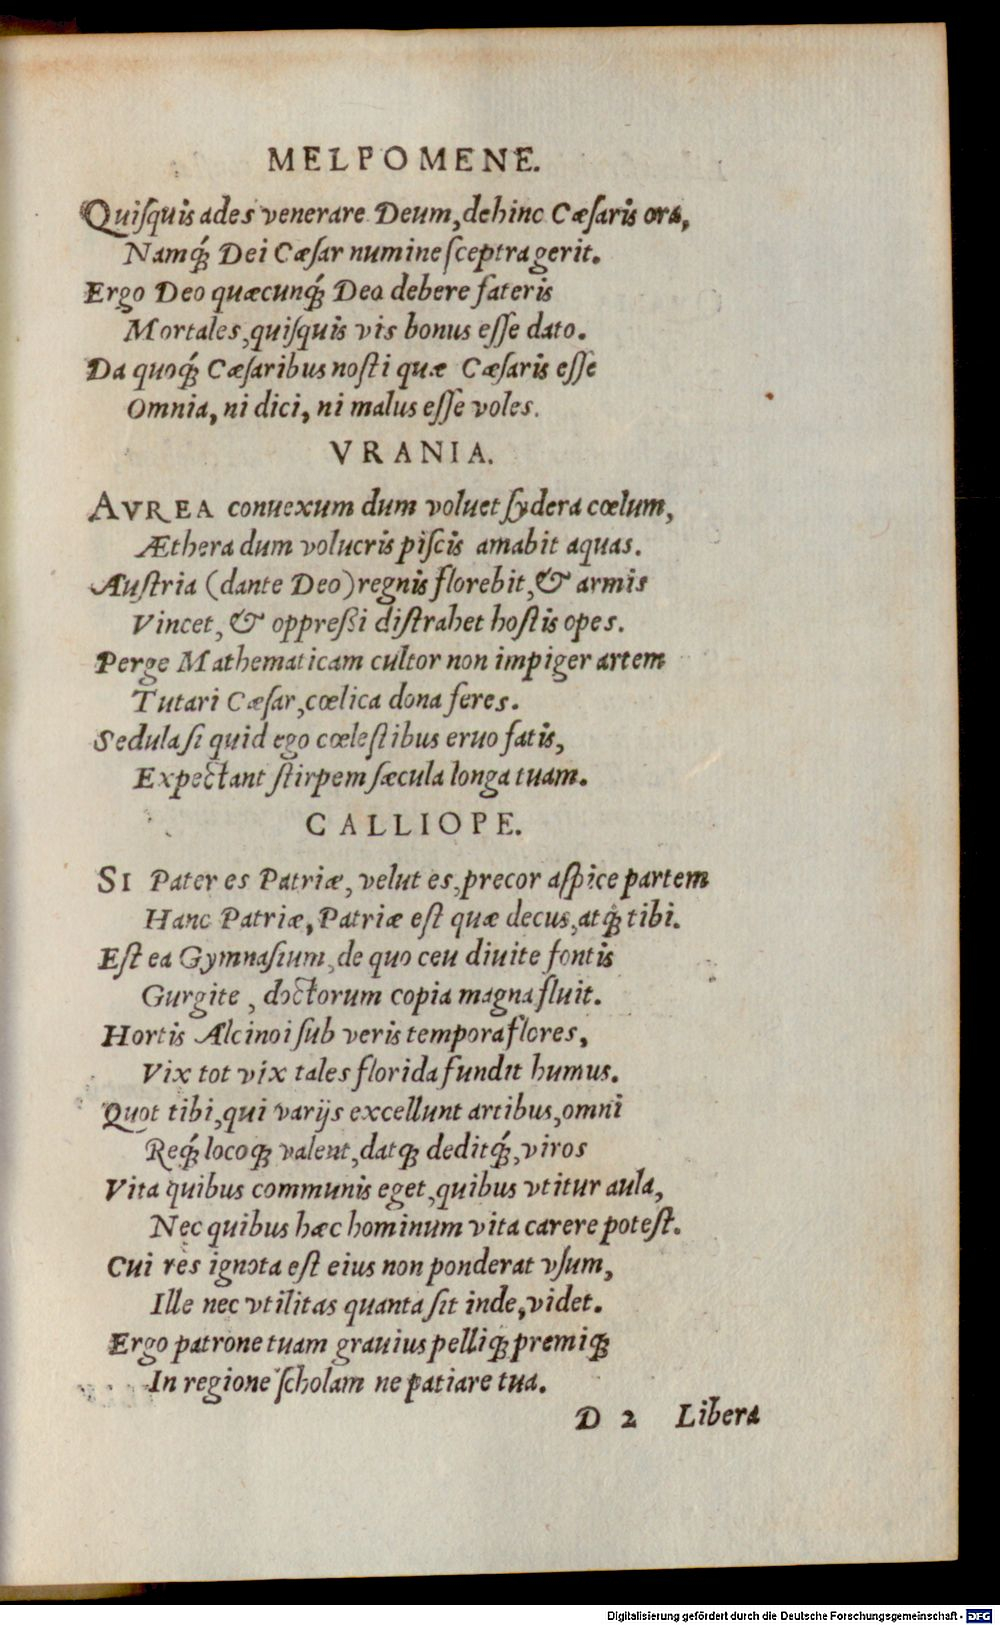 MELPOMENE.
Quiſquis ades venerare Deum, dehinc Cæſaris ora,
Namq́; Dei Cæſar numine ſceptra gerit.
Ergo Deo quæcunq́; Deo debere fateris
Mortales, quiſquis vis bonus eſſe dato.
Da quoq́; Cæſaribus noſti quæ Cæſaris eſſe
Omnia, ni dici, ni malus eſſe voles.
VRANIA.
AVREA conuexum dum voluet ſydera cœlum,
Æthera dum volucris piſcis amabit aquas.
Auſtria (dante Deo) regnis florebit, & armis
Vincet, & oppreßi diſtrahet hoſtis opes.
Perge Mathematicam cultor non impiger artem
Tutari Cæſar, cœlica dona feres.
Sedula ſi quid ego cœleſtibus eruo fatis,
Expectant ſtirpem ſæcula longa tuam.
CALLIOPE.
SI Pater es Patriæ, velut es, precor aſpice partem
Hanc Patriæ, Patriæ eſt quæ decus, atq́; tibi.
Eſt ea Gymnaſium, de quo ceu diuite fontis
Gurgite, doctorum copia magna fluit.
Hortis Alcinoi ſub veris tempora flores,
Vix tot vix tales florida fundit humus.
Quot tibi, qui varijs excellunt artibus, omni
Req́; locoq́; valent, datq́; deditq́;, viros
Vita quibus communis eget, quibus vtitur aula,
Nec quibus hæc hominum vita carere poteſt.
Cui res ignota eſt eius non ponderat vſum,
Ille nec vtilitas quanta ſit inde, videt.
Ergo patrone tuam grauius pelliq́; premiq́;
In regione ſcholam ne patiare tua.
D 2 Libera
Digitalisierung gefördert durch die Deutsche Forschungsgemeinschaft - DFG